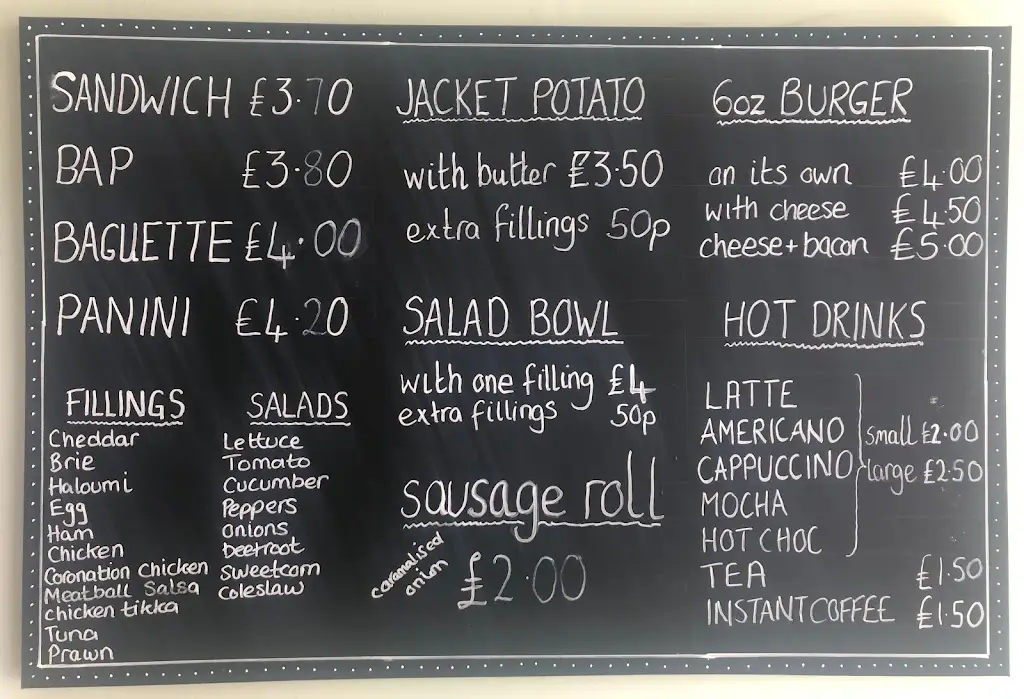 SANDWICH £3.70
BAP £3.80
BAGUETTE £4.00
PANINI £4.20
FILLINGS
Cheddar
Brie
Haloumi
Egg
Ham
Chicken
Coronation Chicken
Meatball Salsa
chicken tikka
Tuna
Prawn
SALADS
Lettuce
Tomato
Cucumber
Peppers
Onions
beetroot
Sweetcorn
Coleslaw
JACKET POTATO
with butter £3.50
extra fillings 50p
SALAD BOWL
with one filling £4
extra fillings 50p
sausage roll
caramalised
onion
£2.00
6oz BURGER
on its own £4.00
with cheese £4.50
cheese+bacon £5.00
HOT DRINKS
LATTE
AMERICANO small £2.00
CAPPUCCINO large £2.50
MOCHA
HOT CHOC
TEA £1.50
INSTANT COFFEE £1.50